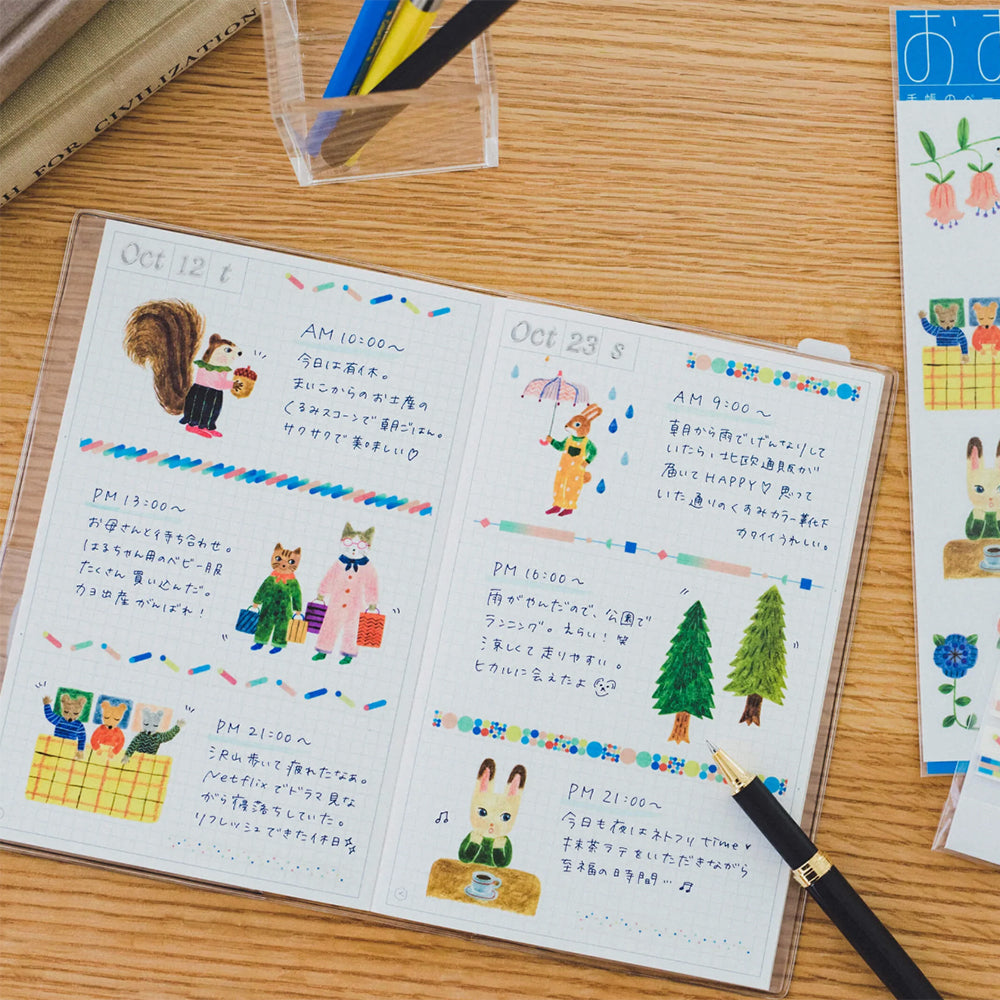 H FOR CIVILIZATION
おお
手帳のペ
Oct 12 t
AM 10:00～
今日は有休。
まいこからのお土産の
くるみスコーンで朝ごはん。
サクサクで美味しい♡
PM 13:00～
お母さんと待ち合わせ。
はるちゃん用のベビー服
たくさん買い込んだ。
カヨ出産がんばれ！
PM 21:00～
沢山歩いて疲れたなぁ。
Netflixでドラマ見な
がら寝落ちしていた。
リフレッシュできた休日☆
Oct 23 s
AM 9:00～
朝から雨でげんなりして
いたら、北欧通販が
届いてHAPPY♡思って
いた通りのくすみカラー靴下
カワイイうれしい。
PM 16:00～
雨がやんだので、公園で
ランニング。えらい！笑
涼しくて走りやすい。
ヒカルに会えたよ
PM 21:00～
今日も夜はネトフリtime♥
抹茶ラテをいただきながら
至福の日時間…♫